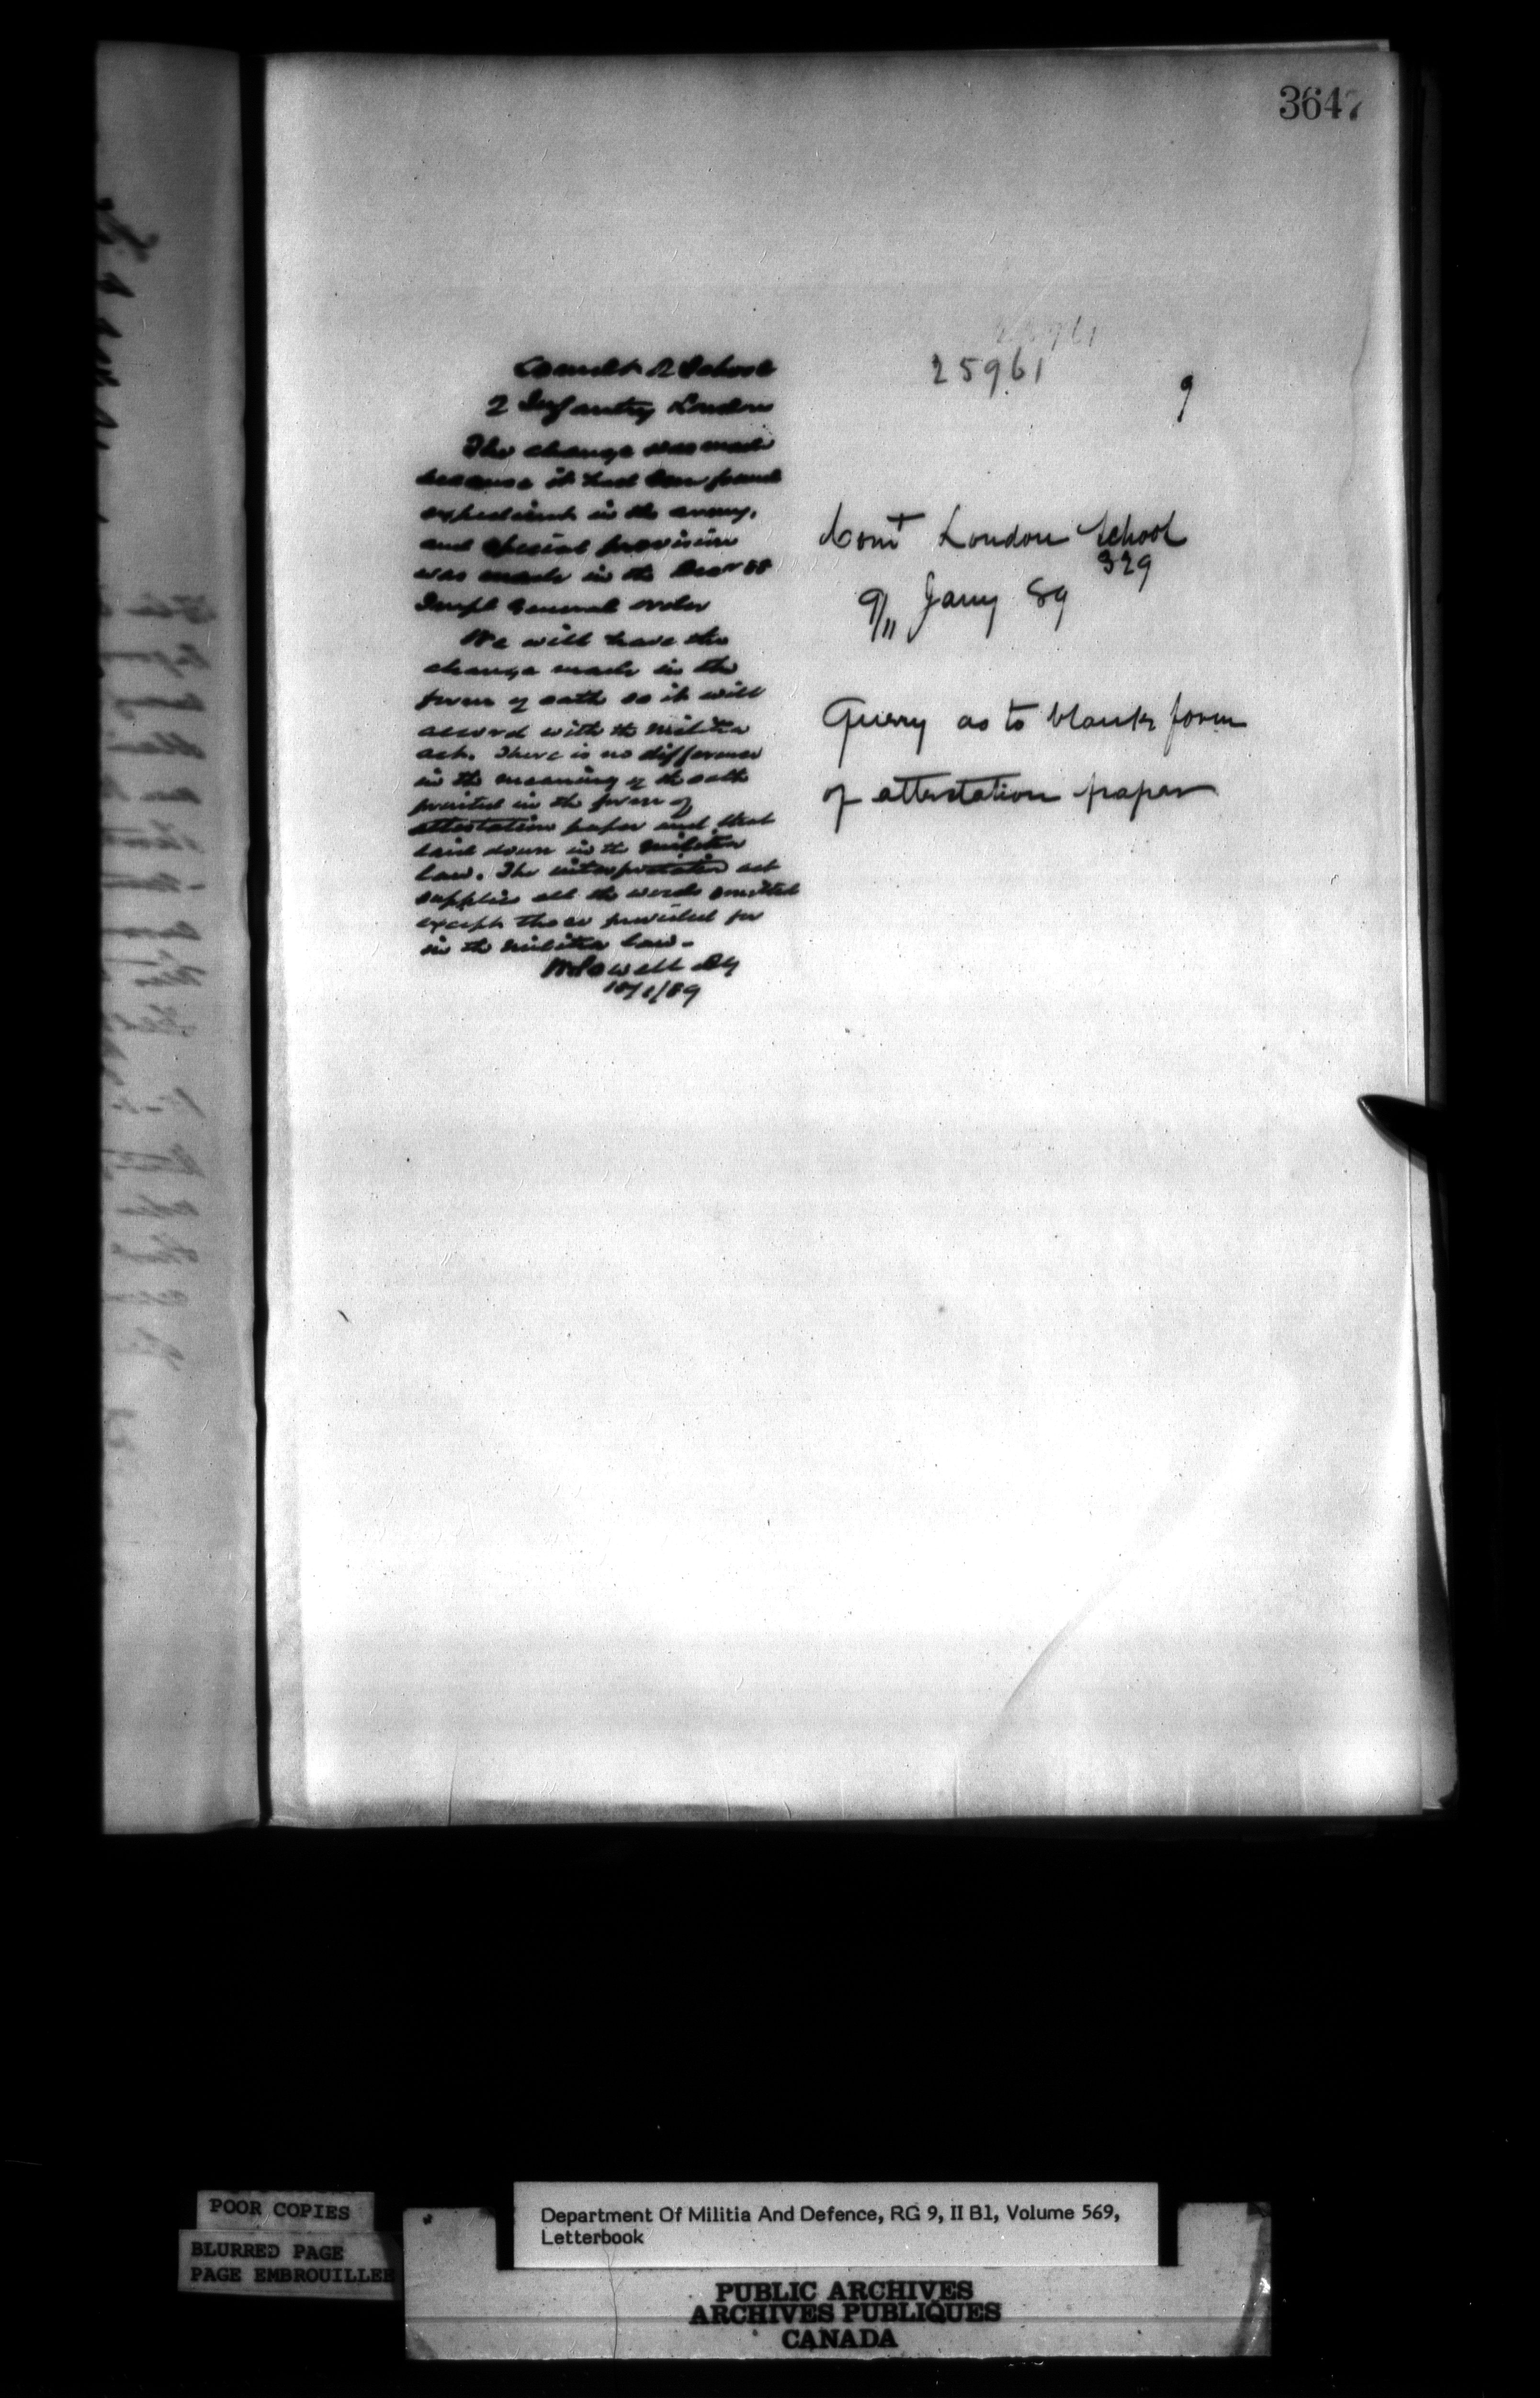 3647
25961
25961
9
Comdt R School
2 Infantry London
The change was made
because it had been found
expedient in the army,
and special provision
was made in the Decr 88
Impl General order
We will have the
change made in the
form of oath so it will
accord with the Militia
act. There is no difference
in the meaning of the oath
printed in the form of
attestation paper and that
laid down in the Militia
law. The interpretation act
supplies all the words omitted
except those provided for
in the Militia law.
WPowell AG
10/1/89
Comt London School
329
9/11 Jany 89
Query as to blank form
of attestation paper
POOR COPIES
BLURRED PAGE
PAGE EMBROUILLEE
Department Of Militia And Defence, RG 9, II B1, Volume 569,
Letterbook
PUBLIC ARCHIVES
ARCHIVES PUBLIQUES
CANADA